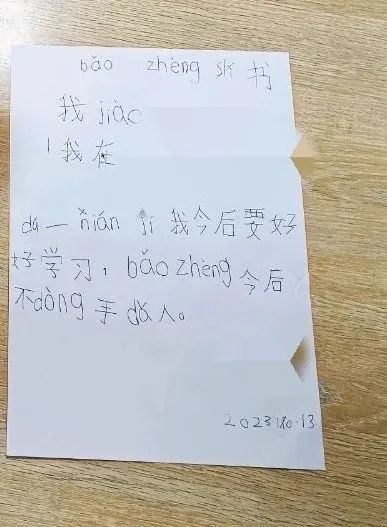 bǎo zhèng sh 书
我 jiào
我在
dú 一 nián jí 我今后要好
好学习，bǎo zhèng 今后
不dòng手 dǎ人。
2023.10.13